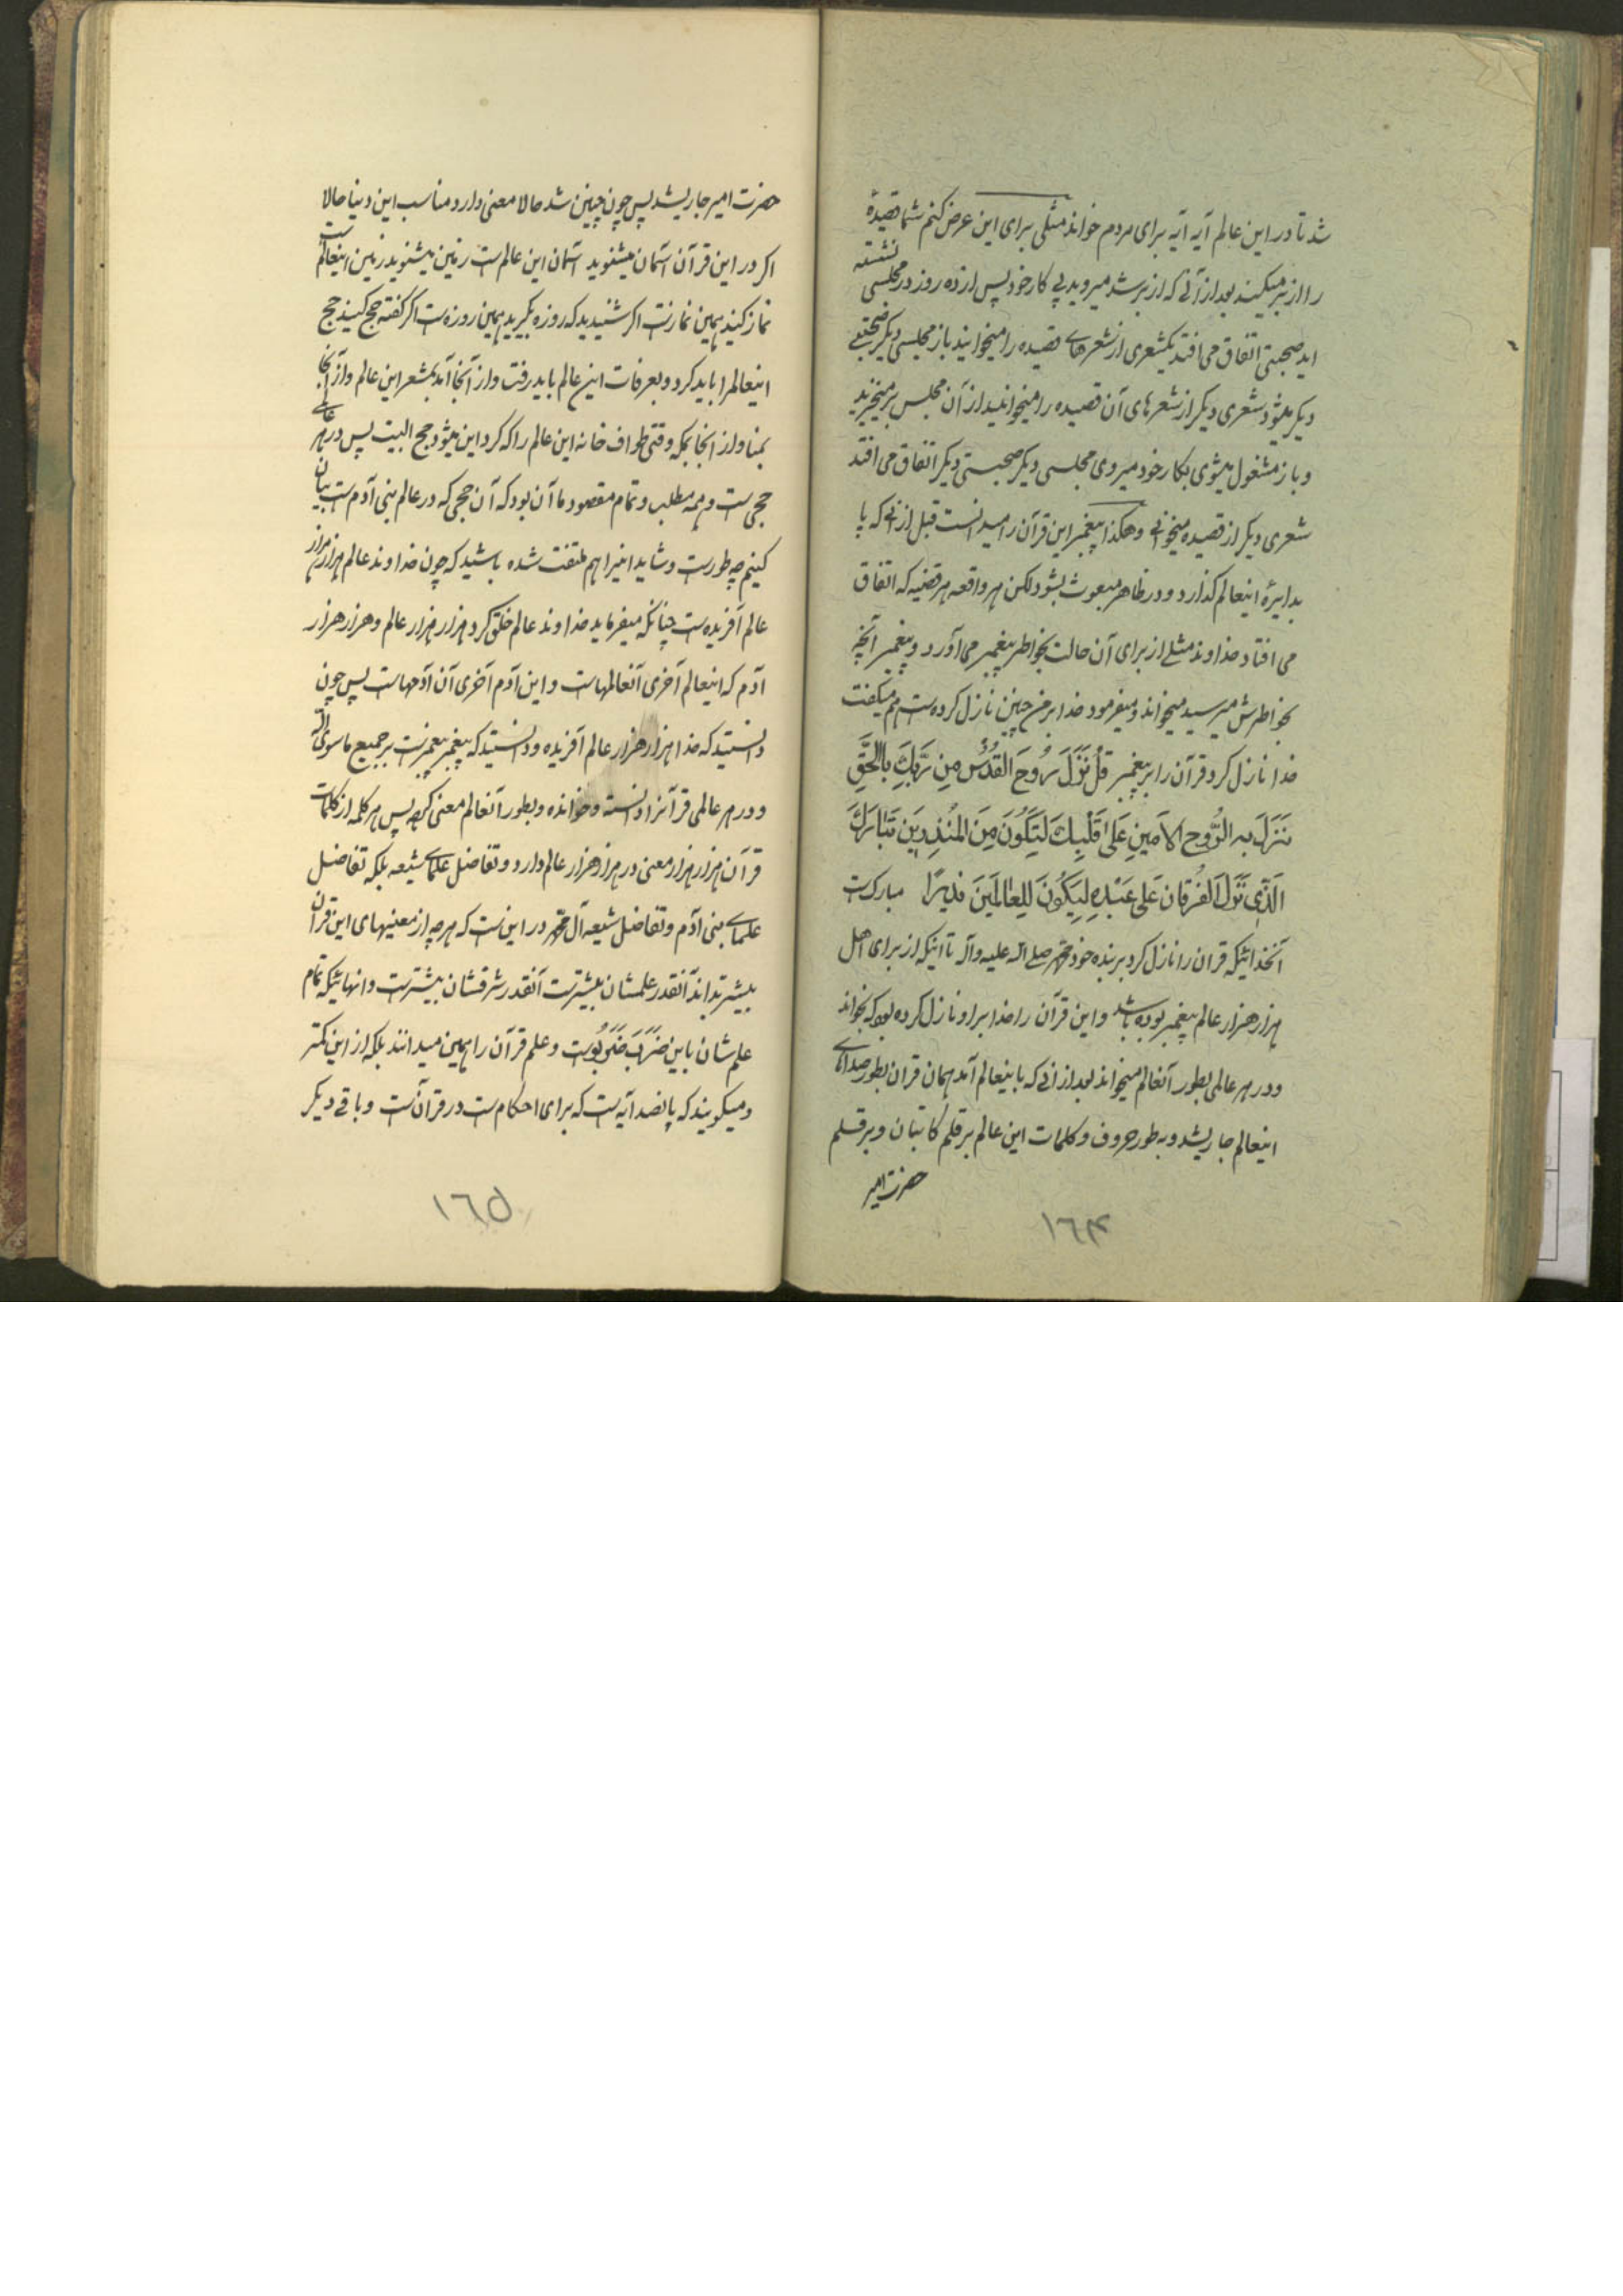 شد تا در این عالم آیه آیه برای مردم خواند مثلی برای این عرض کنم شما قصیدهٔ
را از بر میکنید بعد از آنی که از بر شد میروید پی کار خود پس از ده روز در مجلسی نشسته
اید صحبتی اتفاق می افتد یکشعری از شعرهای قصیده را میخوانید باز مجلسی دیکر صحبتی
دیکر میشود شعری دیکر از شعرهای آن قصیده را میخوانید از آن مجلس بر میخیزید
و باز مشغول میشوی بکار خود میروی مجلسی دیکر صحبتی دیکر اتفاق می افتد
شعری دیکر از قصیده میخوانی و هکذا پیغمبر این قرآن را میدانست قبل از انی که پا
بدایرهٔ اینعالم کذارد و در ظاهر مبعوث بشود لکن هر واقعه هر قضیه که اتفاق
می افتاد خداوند مثلی از برای آن حالت بخواطر پیغمبر می آورد و پیغمبر آنچه
بخواطرش میرسید میخواند و میفرمود خدا بر من چنین نازل کرده است هم میکفت
خدا نازل کرد قرآن را بر پیغمبر قُلْ نَزَّلَ رُوحَ القُدُسِ مِن رَبِّكَ بِالحَقِّ
نَزَلَ بِهِ الرُّوحِ الاَمینِ عَلی قَلْبِكَ لَتِكُونَ مِنَ المُنذِرینَ تَبارَكَ
الَّذی نَزَّلَ الفُرقانَ عَلی عَبْدِهِ لِیَكُونَ لِلعالَمینَ نذیرًا مبارکست
آنخدائیکه قران را نازل کرد بر بنده خود محمد صلی الله علیه وآله تا آنیکه از برای اهل
هزار هزار عالم پیغمبر بوده باشد و این قرآن را خدا بر او نازل کرده بود که بخواند
و در هر عالمی بطور آنعالم میخواند بعد از انی که باینعالم آمد همان قران بطور صداهای
اینعالم جاری شد و به طور حروف و کلمات این عالم بر قلم کاتبان و بر قلم
حضرت امیر
١٦٤
حضرت امیر جاری شد پس چون چنین شد حالا معنی دارد مناسب این دنیا حالا
اکر در این قرآن آسمان میشنوید آسمان این عالم است زمین میشنوید زمین اینعالم است
نماز کنید همین نماز است اکر شنیدید که روزه بکیرید همین روزه است اکر کفته حج کنید حج
اینعالم را باید کرد و بعرفات این عالم باید رفت و از آنجا آمد بمشعر این عالم و از آنجا
بمنا و از انجا بمکه وقتی طواف خانه این عالم را که کرد این میشود حج البیت پس در هر عالمی
حجی است و همه مطلب و تمام مقصود ما آن بود که آن حجی که در عالم بنی آدم است بیان
کنیم چه طور است و شاید اینرا هم ملتفت شده باشید که چون خداوند عالم هزار هزار
عالم آفریده است چنانکه میفرماید خداوند عالم خلق کرد هزار هزار عالم و هزار هزار
آدم که اینعالم آخری آنعالمهاست و این آدم آخری آن آدمهاست پس چون
دانستید که خدا هزار هزار عالم آفریده و دانستید که پیغمبر پیغمبر است بر جمیع ما سوی الله
و در هر عالمی قرآنرا دانسته و خوانده و بطور آنعالم معنی کرده پس هر کلمه از کلمات
قرآن هزار هزار معنی در هزار هزار عالم دارد و تفاضل علمای شیعه بلکه تفاضل
علمای بنی آدم و تفاضل شیعه آل محمد در این است که هر چه از معنیهای این قرآن
بیشتر بدانند آنقدر علمشان بیشتر است آنقدر شرفشان بیشتر است و انهائیکه تمام
علمشان باین ضَرَبَ ضَرَبُوست و علم قرآن را همین میدانند بلکه از این کمتر
و میکویند که پانصد آیه است که برای احکام است در قرآن است و باقی دیکر
١٦٥